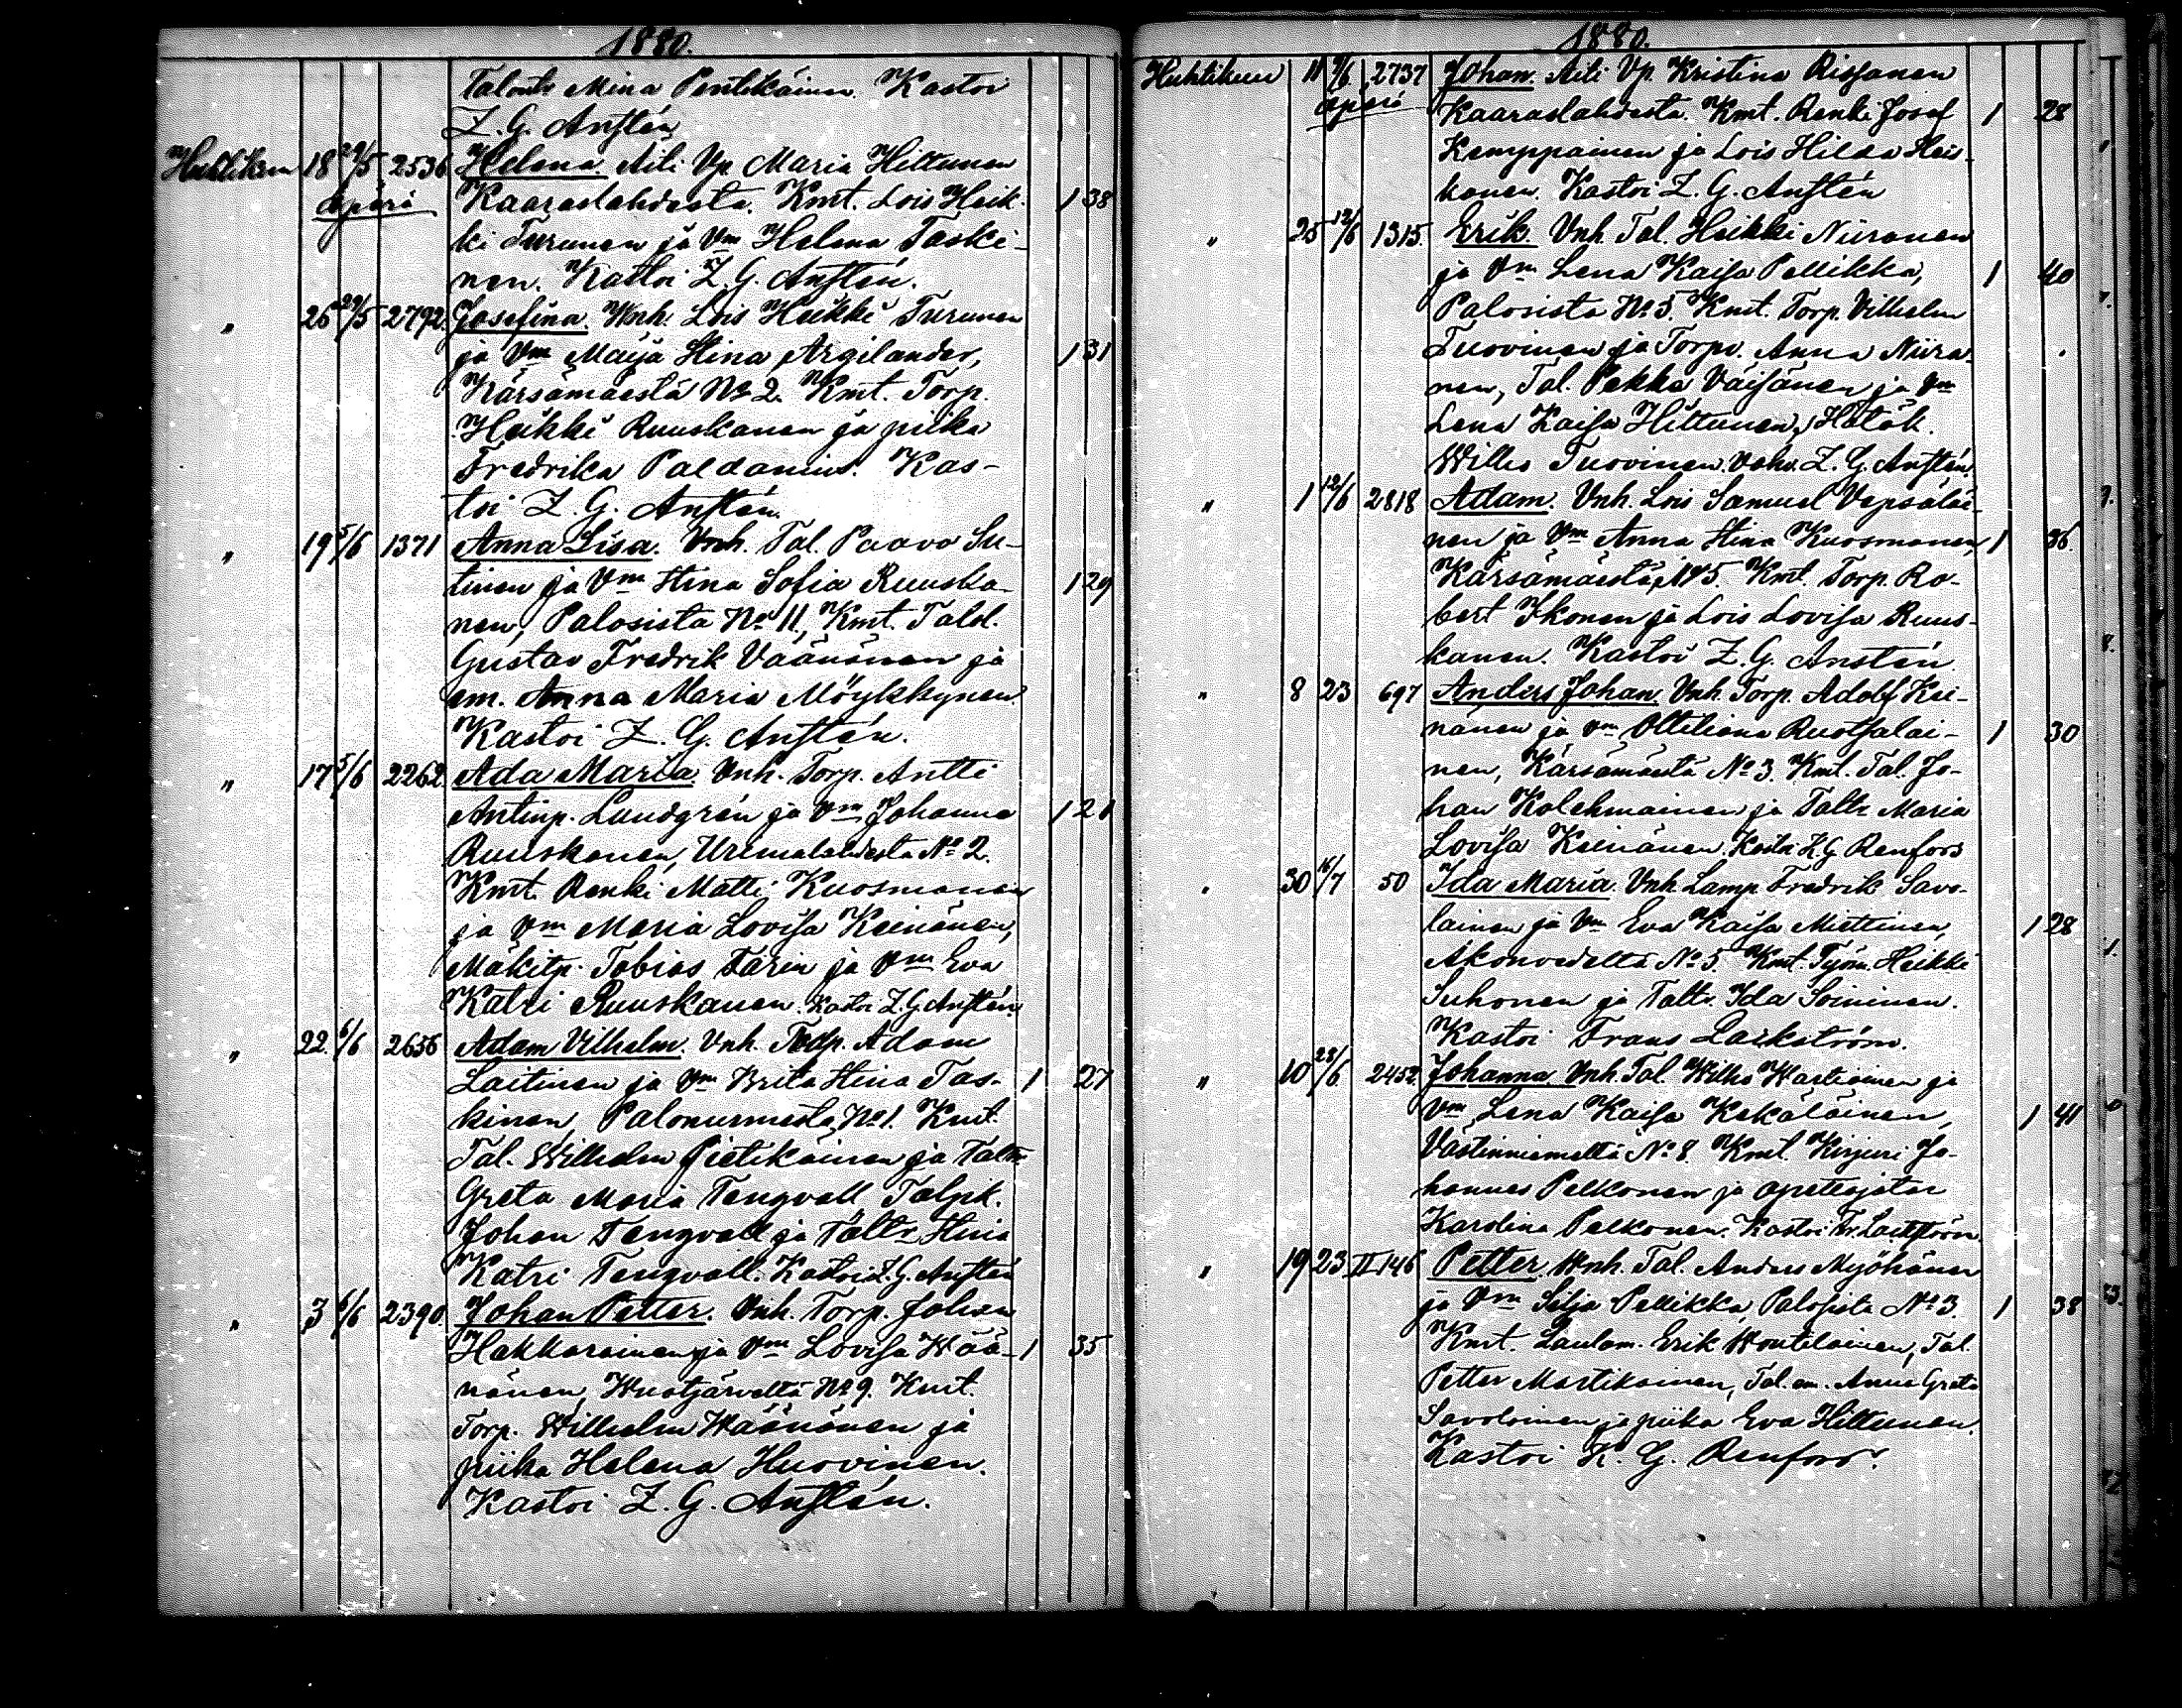 1880.
Talontr Mina Pentikäinen. Kastoi
Z. G. Anstén
Huhtikuu 18 29/5 2536 Helena. Äiti Vp. Maria Hiltunen
äpärä Kaaraslahdesta. Kmt. Lois Heik- 1 38
ki Turunen ja Vm Helena Taski-
nen. Kastoi Z. G. Anstén.
" 26 29/5 2792. Josefina. Vnh. Lois Heikki Turunen
ja Vm Maija Stina Argilander, 1 31
Kärsämäestä No 2. Kmt. Torp.
Heikki Ruuskanen ja piika
Fredrika Paldanius. Kas-
toi Z. G. Anstén.
" 19 5/6 1371 Anna Lisa. Vnh. Tal. Paavo Su-
tinen ja Vm Stina Sofia Ruuska- 1 29
nen, Palosista No 11, Kmt. Talol.
Gustav Fredrik Väänänen ja
em. Anna Maria Möykkynen.
Kastoi Z. G. Anstén.
" 17 5/6 2262. Ada Maria. Vnh. Torp. Antti
Antinp. Lundgrén ja Vm Johanna 1 21
Ruuskanen, Urimolahdesta No 2.
Kmt. Renki Matti Kuosmanen
ja Vm Maria Lovisa Keinänen,
Mäkitp. Tobias Farin ja Vm Eva
Katri Ruuskanen. Kastoi Z. G. Anstén
" 22. 6/6 2656 Adam Vilhelm. Vnh. Torp. Adam
Laitinen ja Vm Brita Stina Tas- 1 27
kinen, Palonurmesta No 1. Kmt.
Tal. Wilhelm Pietikäinen ja Taltr
Greta Maria Tengvall Talpik.
Johan Tengvall ja Taltr Stina
Katri Tengvall. Kastoi Z. G. Anstén
" 3 6/6 2390. Johan Petter. Vnh. Torp. Johan
Hakkarainen ja Vm Lovisa Wää- 1 35
nänen, Wuotjärveltä No 9. Kmt.
Torp. Wilhelm Wäänänen ja
piika Helena Huovinen.
Kastoi Z. G. Anstén.
1880.
Huhtikuu 11 9/6 2737 Johan. Äiti Vp. Kristina Rissanen
äpärä Kaaraslahdesta. Kmt. Renki Josef 1 28
Kemppainen ja Lois Hilda Heis-
kanen. Kastoi Z. G. Anstén
" 25 12/6 1315. Erik. Vnh. Tal. Heikki Niiranen
ja Vm Lena Kaisa Pellikka, 1 40
Palosista No 5. Kmt. Torp. Vilhelm
Tuovinen ja Torpv. Anna Niira-
nen, Tal. Pekka Väisänen ja Vm
Lena Kaisa Hiltunen, Hätäk.
Wilho Tuovinen. Vahv. Z. G. Anstén.
" 1 12/6 2818 Adam. Vnh. Lois Samuel Vepsäläi-
nen ja Vm Anna Stina Kuosmanen, 1 36.
Kärsämäestä No 5. Kmt. Torp. Ro-
bert Ikonen ja Lois Lovisa Ruus-
kanen. Kastoi Z. G. Anstén
" 8 23 697 Anders Johan. Vnh. Torp. Adolf Kei-
nänen ja Vm Ottiliana Ruotsalai- 1 30
nen, Kärsämäestä No 3. Kmt. Tal. Jo-
han Kolehmainen ja Taltr Maria
Lovisa Keinänen. Kastoi K. G. Renfors
" 30 16/7 50 Ida Maria. Vnh. Lamp. Fredrik Savo-
lainen ja Vm Eva Kaisa Miettinen, 1 28
Akonvedeltä No 5. Kmt. Työm. Heikki
Suhonen ja Taltr. Ida Soininen.
Kastoi Frans Lackström.
" 10 28/6 2452. Johanna. Vnh. Tal. Wilho Wartiainen ja
Vm Lena Kaisa Kekäläinen, 1 41
Västinniemeltä No 8. Kmt. Kirjuri Jo-
hannes Pelkonen ja opettajatar
Karolina Pelkonen. Kastoi Fr. Lackström.
" 19 23 II 146 Petter. Vnh. Tal. Anders Myöhänen
ja Vm Silja Pellikka, Palosista No 3. 1 38
Kmt. Lautam. Erik Woutilainen, Tal.
Petter Martikainen, Tal. em. Anna Greta
Savolainen ja piika Eva Hiltunen.
Kastoi K. G. Renfors.